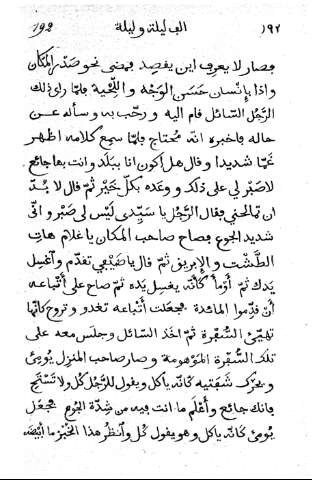 ١٩٢ الف ليلة وليلة 192
فصار لا يعرف اين يقصد فمضى نحو صدر المكان
واذا بإنسان حسن الوجه واللحية فلمّا رأى ذلك
الرجل السائل قام اليه ورحّب به وسأله عن
حاله فاخبره انّه محتاج فلمّا سمع كلامه اظهر
غمّا شديدا وقال هل أكون انا ببلد وانت بها جائع
لا صبر لي على ذلك ووعده بكلّ خير ثمّ قال لا بُدّ
ان تمالحني فقال الرّجل يا سيّدى ليس لى صبر وانّى
شديد الجوع فصاح صاحب المكان يا غلام هات
الطّشت والإبريق ثمّ قال يا ضيفي تقدّم واغسل
يدك ثمّ أومأ كأنّه يغسل يده ثمّ صاح على أتباعه
أن قدّموا المائدة فجعلت أتباعه تغدو وتروح كأنّها
تهيّئ السّفرة ثمّ اخذ السّائل وجلس معه على
تلك السّفرة الموهومة وصار صاحب المنزل يومئ
ويحرّك شفتيه كأنّه يأكل ويقول للرّجل كُل ولا تستح
فإنّك جائع وأعلم ما انت فيه من شدّة الجوع فجعل
يومئ كأنّه ياكل وهو يقول كُل وانظر هذا الخبز ما ابيضه